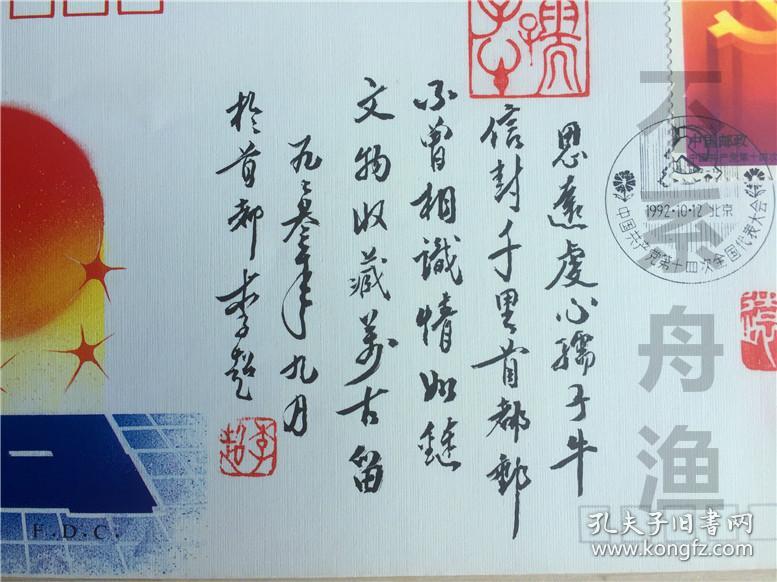 思遠虔心孺子牛
信封千里首都郵
不曾相識情如鍾
文物收藏萬古留
九三叁年九月
於首都李超
李超
中国邮政
1992·10·12 北京
中国共产党第十四次全国代表大会
F.D.C.
不系舟渔
孔夫子旧书网
www.kongfz.com